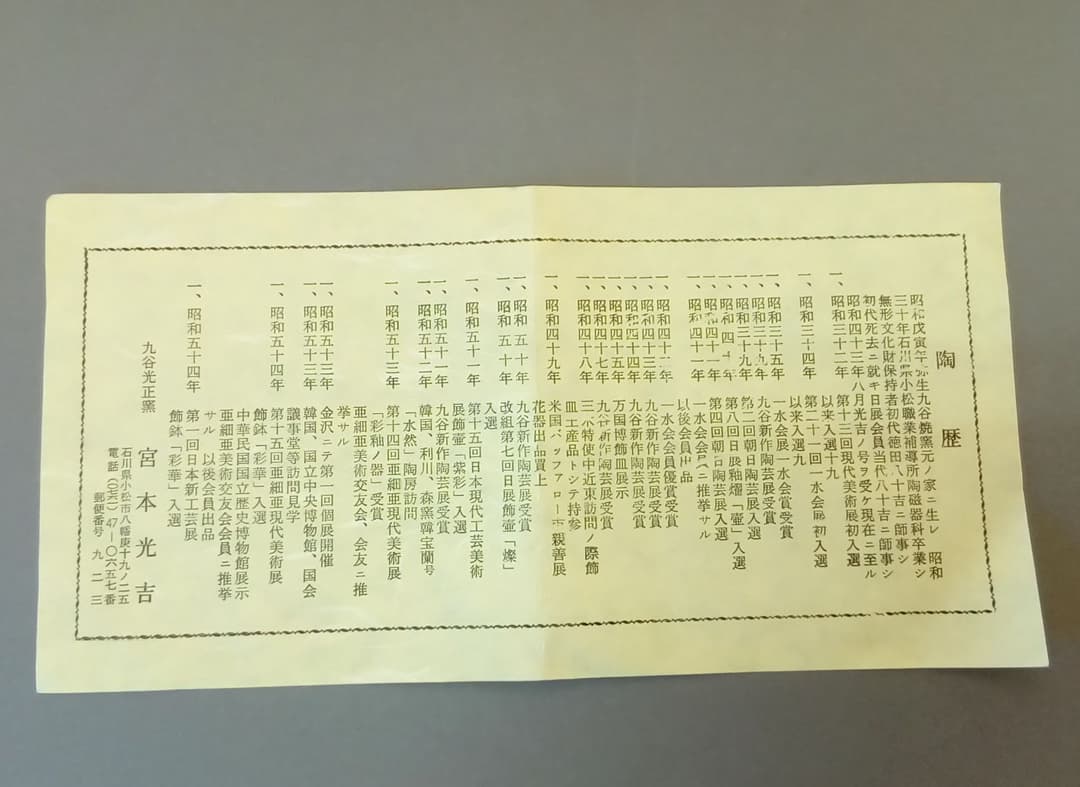 陶歴
昭和戊寅年弥生九谷焼窯元ノ家ニ生レ 昭和
三十年石川県小松職業補導所陶磁器科卒業シ
無形文化財保持者初代徳田八十吉ニ師事シ
初代死去ニ就キ日展会員当代八十吉ニ師事シ
昭和四十三年八月光吉ノ号ヲ受ケ現在ニ至ル
一、昭和三十二年 第十三回現代美術展初入選
以来入選十九
一、昭和三十四年 第二十一回一水会展初入選
以来入選九
一、昭和三十五年 一水会展一水会賞受賞
一、昭和三十九年 九谷新作陶芸展受賞
一、昭和三十九年 第二回朝日陶芸展入選
一、昭和四十年 第八回日展釉燿「壷」入選
一、昭和四十一年 第四回朝日陶芸展入選
一、昭和四十一年 一水会会員ニ推挙サル
以後会員出品
一、昭和四十二年 一水会会員優賞受賞
一、昭和四十三年 九谷新作陶芸展受賞
一、昭和四十四年 九谷新作陶芸展受賞
一、昭和四十五年 万国博飾皿展示
一、昭和四十七年 九谷新作陶芸展受賞
一、昭和四十八年 三木特使中近東訪問ノ際飾
皿土産品トシテ持参
一、昭和四十九年 米国バッファロー市親善展
花器出品買上
一、昭和五十年 九谷新作陶芸展受賞
一、昭和五十年 改組第七回日展飾壷「燦」
入選
一、昭和五十一年 第十五回日本現代工芸美術
展飾壷「紫彩」入選
一、昭和五十一年 九谷新作陶芸展受賞
一、昭和五十二年 韓国、利川、森窯韓宝蘭号
「水然」陶房訪問
一、昭和五十三年 第十四回亜細亜現代美術展
「彩釉ノ器」受賞
亜細亜美術交友会、会友ニ推
挙サル
一、昭和五十三年 金沢ニテ第一回個展開催
一、昭和五十三年 韓国、国立中央博物館、国会
議事堂等訪問見学
一、昭和五十四年 第十五回亜細亜現代美術展
飾鉢「彩華」入選
中華民国国立歴史博物館展示
亜細亜美術交友会会員ニ推挙
サル 以後会員出品
一、昭和五十四年 第一回日本新工芸展
飾鉢「彩華」入選
九谷光正窯 宮本光吉
石川県小松市八幡庚十九ノ二五
電話(〇七六一)47―〇六五七番
郵便番号 九二三